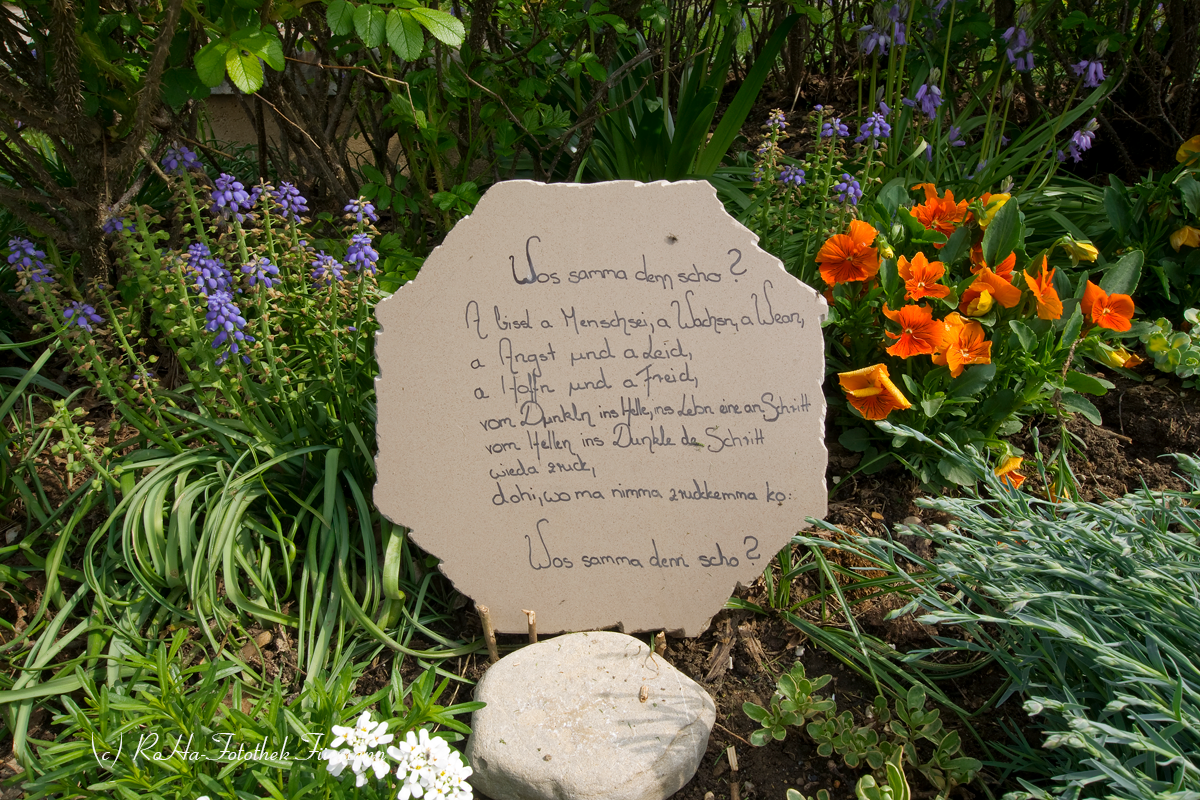 Wos samma denn scho?
A bissl a Menschsei, a Wachsn, a Wean,
a Angst und a Leid,
a Hoffn und a Freid,
vom Dunkln ins Helle, ins Lebn eine an Schritt
vom Hellen ins Dunkle de Schritt
wieda zruck,
dohi, wo ma nimma zruckkemma ko:
Wos samma denn scho?
(c) RoHa-Fotothek Fürmann